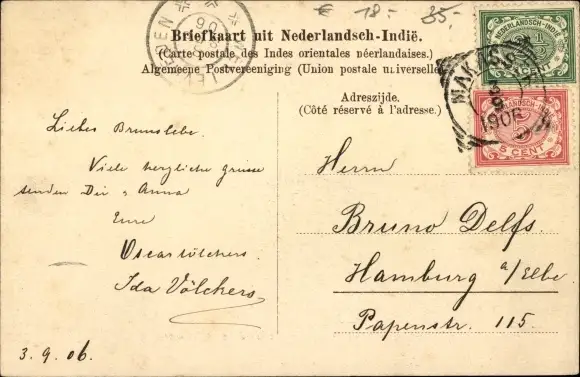 € 18.- 35.-
Briefkaart uit Nederlandsch-Indië.
(Carte postale des Indes orientales néerlandaises.)
Algemeene Postvereeniging (Union postale universelle
Adreszijde.
(Côté réservé à l'adresse.)
NEDERLANDSCH-INDIË
2 1/2
MAKASS
3
9
1906
NEDERLANDSCH-INDIË
5 CENT
Liebes
Viele herzliche Grüsse
senden Dir & Anna
Eure
Oscar Völchers
Ida Völchers
3.9.06.
Herrn
Bruno Delfs.
Hamburg a/Elbe
Papenstr. 115.